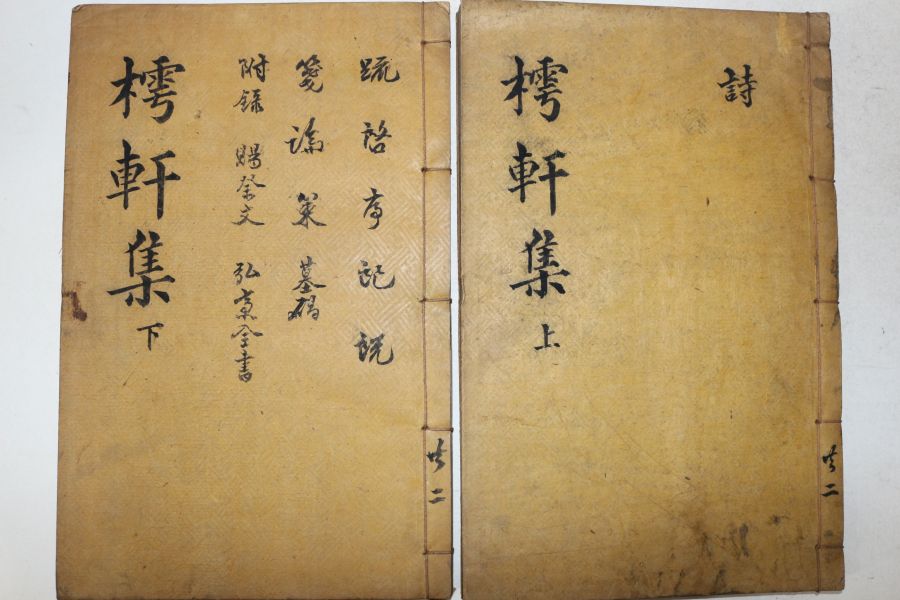 共二
詩
樗軒集 上
共二
疏 啓 序 記 說
箋 論 策 墓碣
附錄 賜祭文 弘齋全書
樗軒集 下